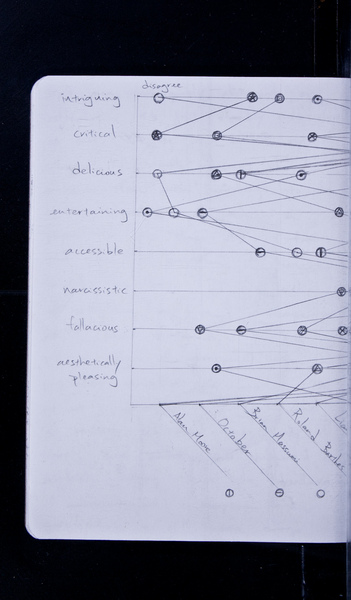 disagree
intriguing
critical
delicious
entertaining
accessible
narcissistic
fallacious
aesthetically
pleasing
October
Brian Massumi
Roland Barthes